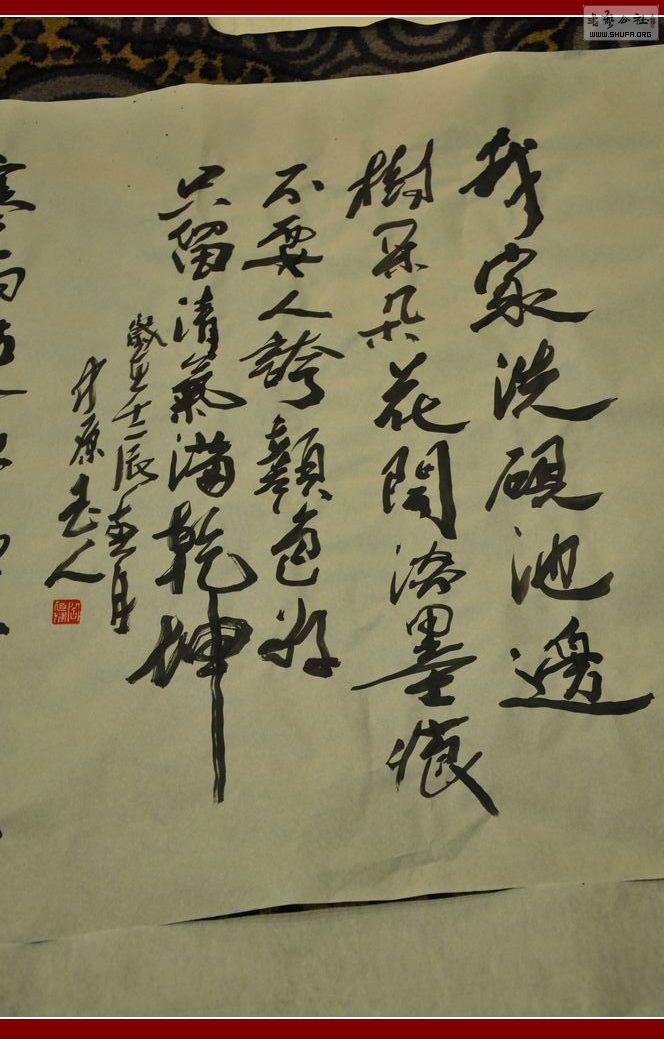 书艺公社
WWW.SHUFA.ORG
我家洗硯池邊
樹朵朵花開淡墨痕
不要人誇顏色好
只留清氣滿乾坤
歲在壬辰春月
老人